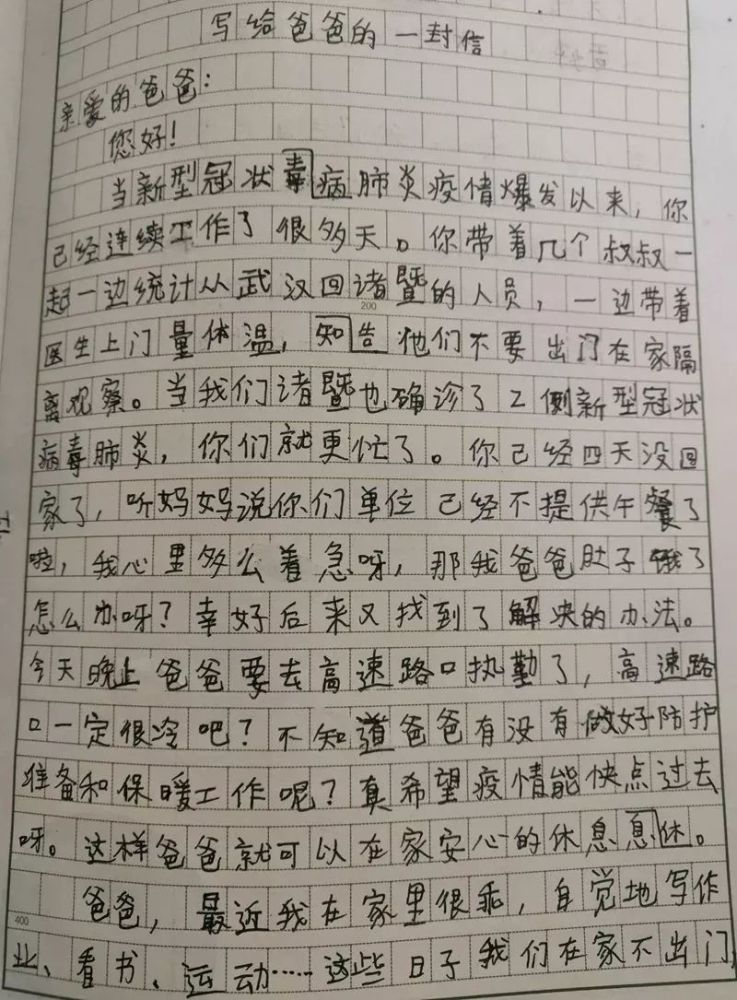 写给爸爸的一封信
亲爱的爸爸：
您好！
当新型冠状毒病肺炎疫情爆发以来，你
己经连续工作了很多天。你带着几个叔叔一
起一边统计从武汉回诸暨的人员，一边带着
200
医生上门量体温，知告他们不要出门在家隔
离观察。当我们诸暨也确诊了2例新型冠状
病毒肺炎，你们就更忙了。你己经四天没回
家了，听妈妈说你们单位己经不提供午餐了
啦，我心里多么着急呀，那我爸爸肚子饿了
怎么办呀？幸好后来又找到了解决的办法。
今天晚上爸爸要去高速路口执勤了，高速路
口一定很冷吧？不知道爸爸有没有做好防护
准备和保暖工作呢？真希望疫情能快点过去
呀。这样爸爸就可以在家安心的休息息休。
爸爸，最近我在家里很乖，自觉地写作
400
业、看书、运动……这些日子我们在家不出门，